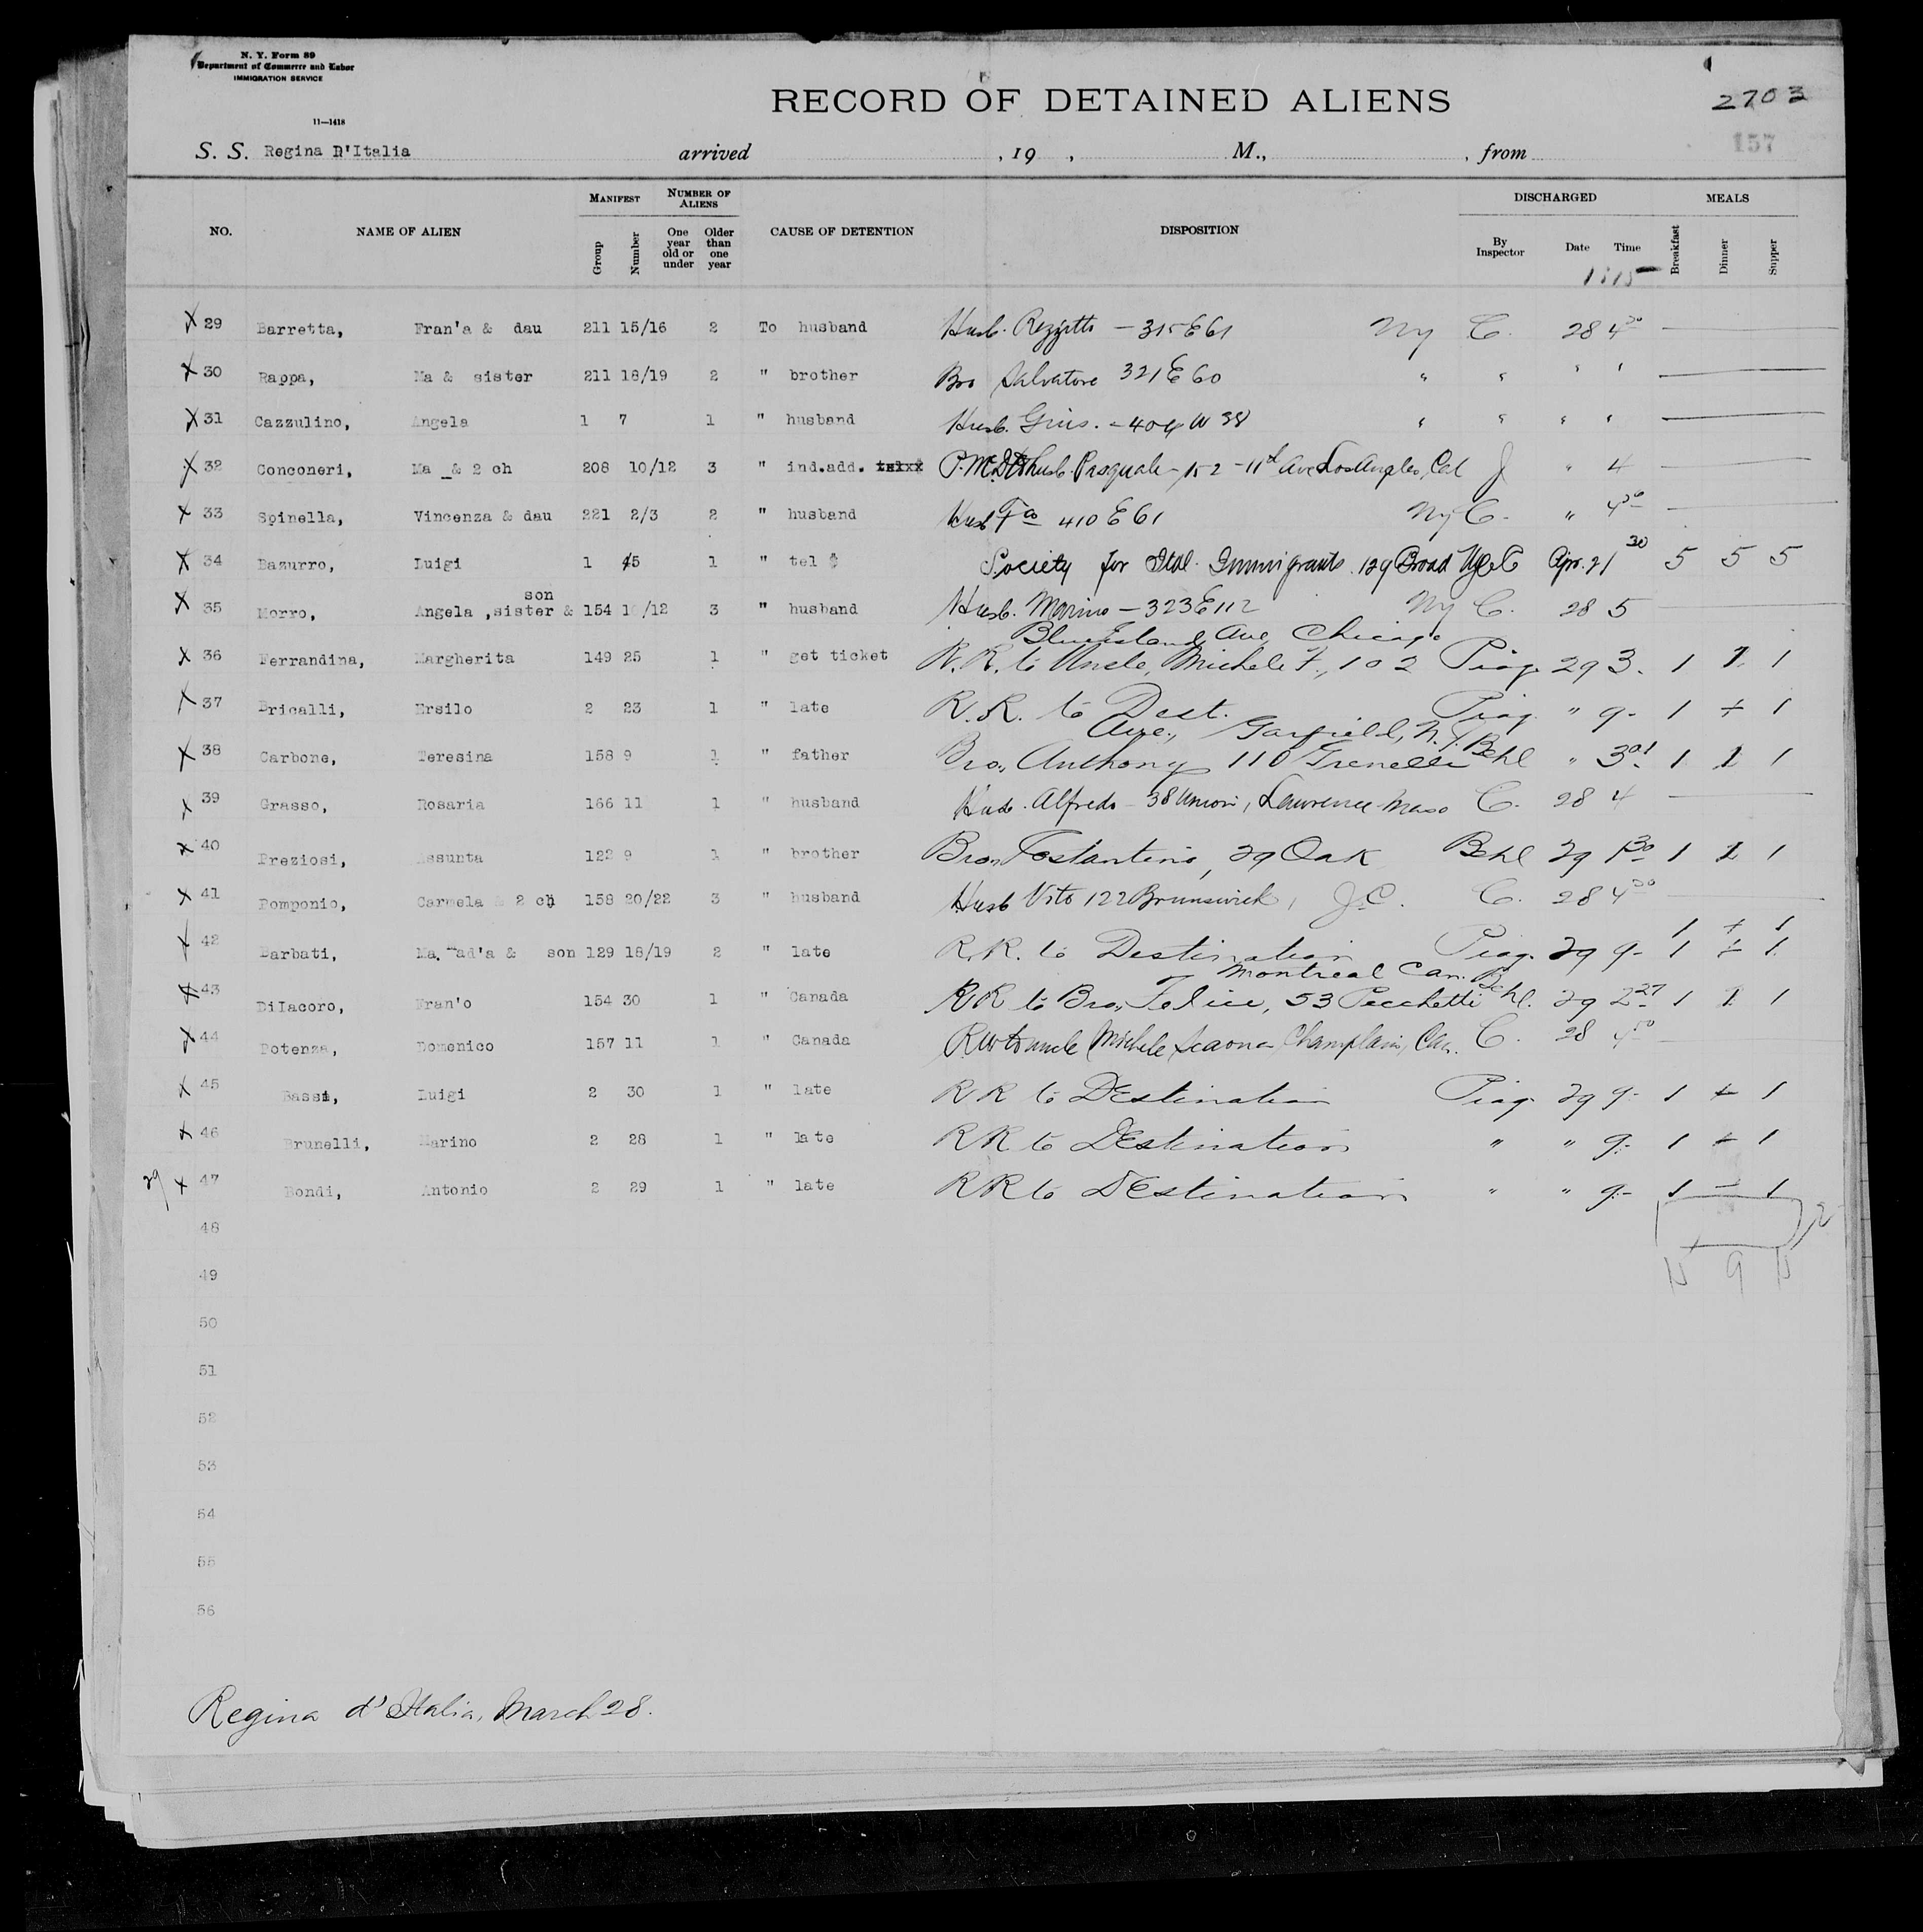 N. Y. Form 89
Department of Commerce and Labor
IMMIGRATION SERVICE
11—1418
RECORD OF DETAINED ALIENS
2703
157
S. S. Regina D'Italia arrived , 19 , M., , from
NO. NAME OF ALIEN MANIFEST Group Number NUMBER OF ALIENS One year old or under Older than one year CAUSE OF DETENTION DISPOSITION DISCHARGED By Inspector Date Time MEALS Breakfast Dinner Supper
1:15
29 Barretta, Fran'a & dau 211 15/16 2 To husband Husb. — 315 E 61 NY C. 28 4 30
30 Rappa, Ma & sister 211 18/19 2 " brother Bro Salvatore 321 E 60 " " " "
31 Cazzulino, Angela 1 7 1 " husband Husb. Gius. - 404 W 38 " " " "
32 Conconeri, Ma & 2 ch 208 10/12 3 " ind.add. husb. Pasquale - 152 - 11th Ave Los Angeles, Cal J " 4
33 Spinella, Vincenza & dau 221 2/3 2 " husband Husb Fco 410 E 61 NY C. " 4 30
34 Bazurro, Luigi 1 45 1 " tel $ Society for Ital. Immigrants. 129 Broad NYC C Apr. 2 1 30 5 5 5
35 Morro, Angela ,sister & son 154 1 /12 3 " husband Husb. Marino — 323 E 112 NY C. 28 5
Blue Island Ave, Chicago
36 Ferrandina, Margherita 149 25 1 " get ticket R.R. to Uncle, Michele F., 102 Piag. 29 3. 1 1 1
37 Bricalli, Ersilo 2 23 1 " late R.R. to Dest. Piag. " 9- 1 + 1
Ave., Garfield, N.J.
38 Carbone, Teresina 158 9 1 " father Bro, Anthony 110 Behl " 3 01 1 1 1
39 Grasso, Rosaria 166 11 1 " husband Husb. Alfredo - 38 Union, Lawrence Mass C. 28 4
40 Preziosi, Assunta 122 9 1 " brother Bro, Costantino, 29 Oak Behl 29 1 30 1 1 1
41 Pomponio, Carmela & 2 ch 158 20/22 3 " husband Husb Vito 122 Brunswick, J.C. C. 28 4 30
1 + 1
42 Barbati, Ma. ad'a & son 129 18/19 2 " late R.R. to Destination Piag. 29 9- 1 + 1
Montreal Can.
43 DiIacoro, Fran'o 154 30 1 " Canada RR to Bro, Felice, 53 Behl. 29 2 27 1 1 1
44 Potenza, Domenico 157 11 1 " Canada uncle Michele Champlain, Can. C. 28 4 30
45 Bassi, Luigi 2 30 1 " late RR to Destination Piag. 29 9- 1 + 1
46 Brunelli, Marino 2 28 1 " late RR to Destination " " 9- 1 + 1
29 47 Bondi, Antonio 2 29 1 " late RR to Destination " " 9- 1 — 1
48
49
50
51
52
53
54
55
56
Regina d'Italia, March 28.